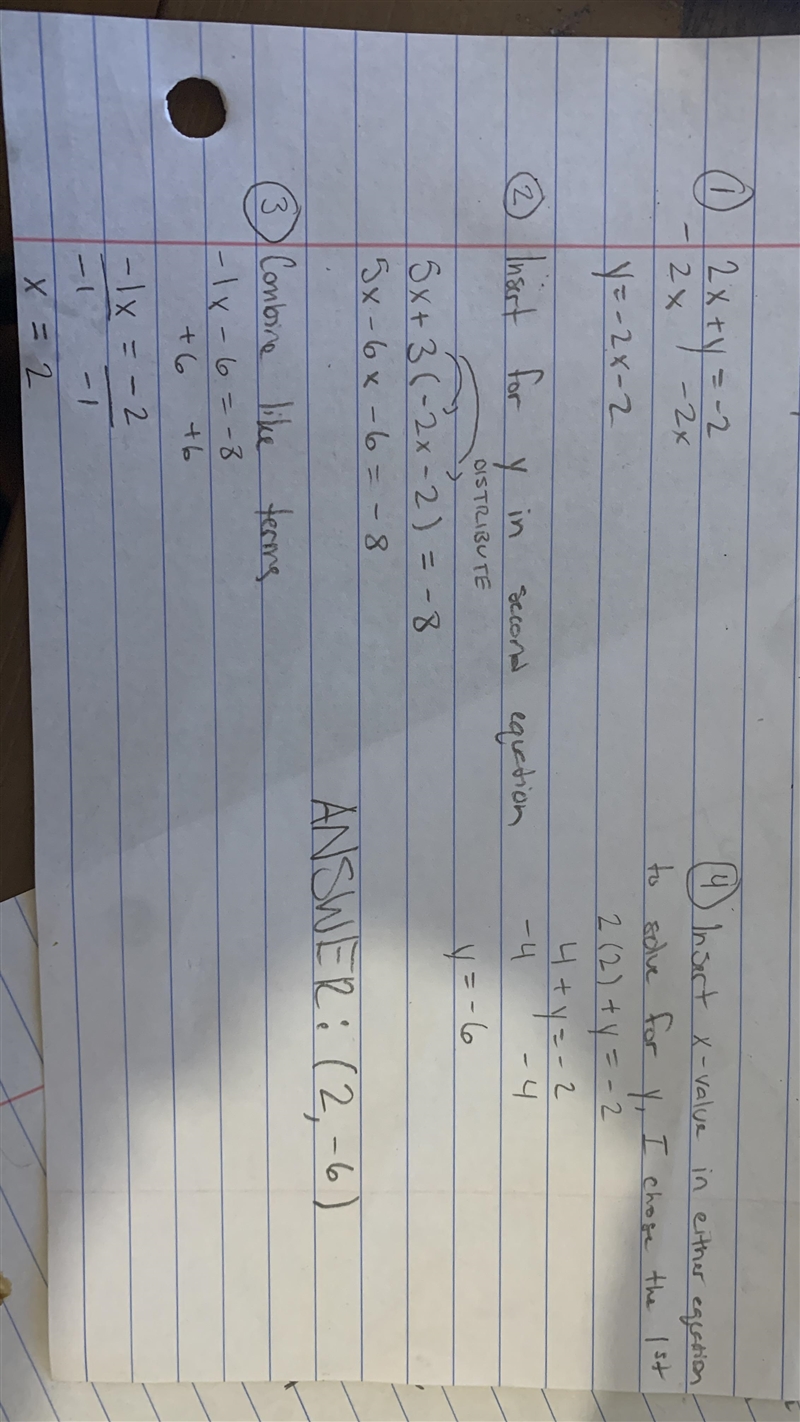 ① 2x+y=-2
- 2x -2x
y=-2x-2
② Insert for y in second equation
DISTRIBUTE
5x+3(-2x-2)=-8
5x-6x-6=-8
③ Combine like terms
-1x-6=-8
+6 +6
-1x=-2
-1 -1
x=2
④ Insert x-value in either equation
to solve for y, I chose the 1st
2(2)+y=-2
4+y=-2
-4 -4
y=-6
ANSWER: (2,-6)